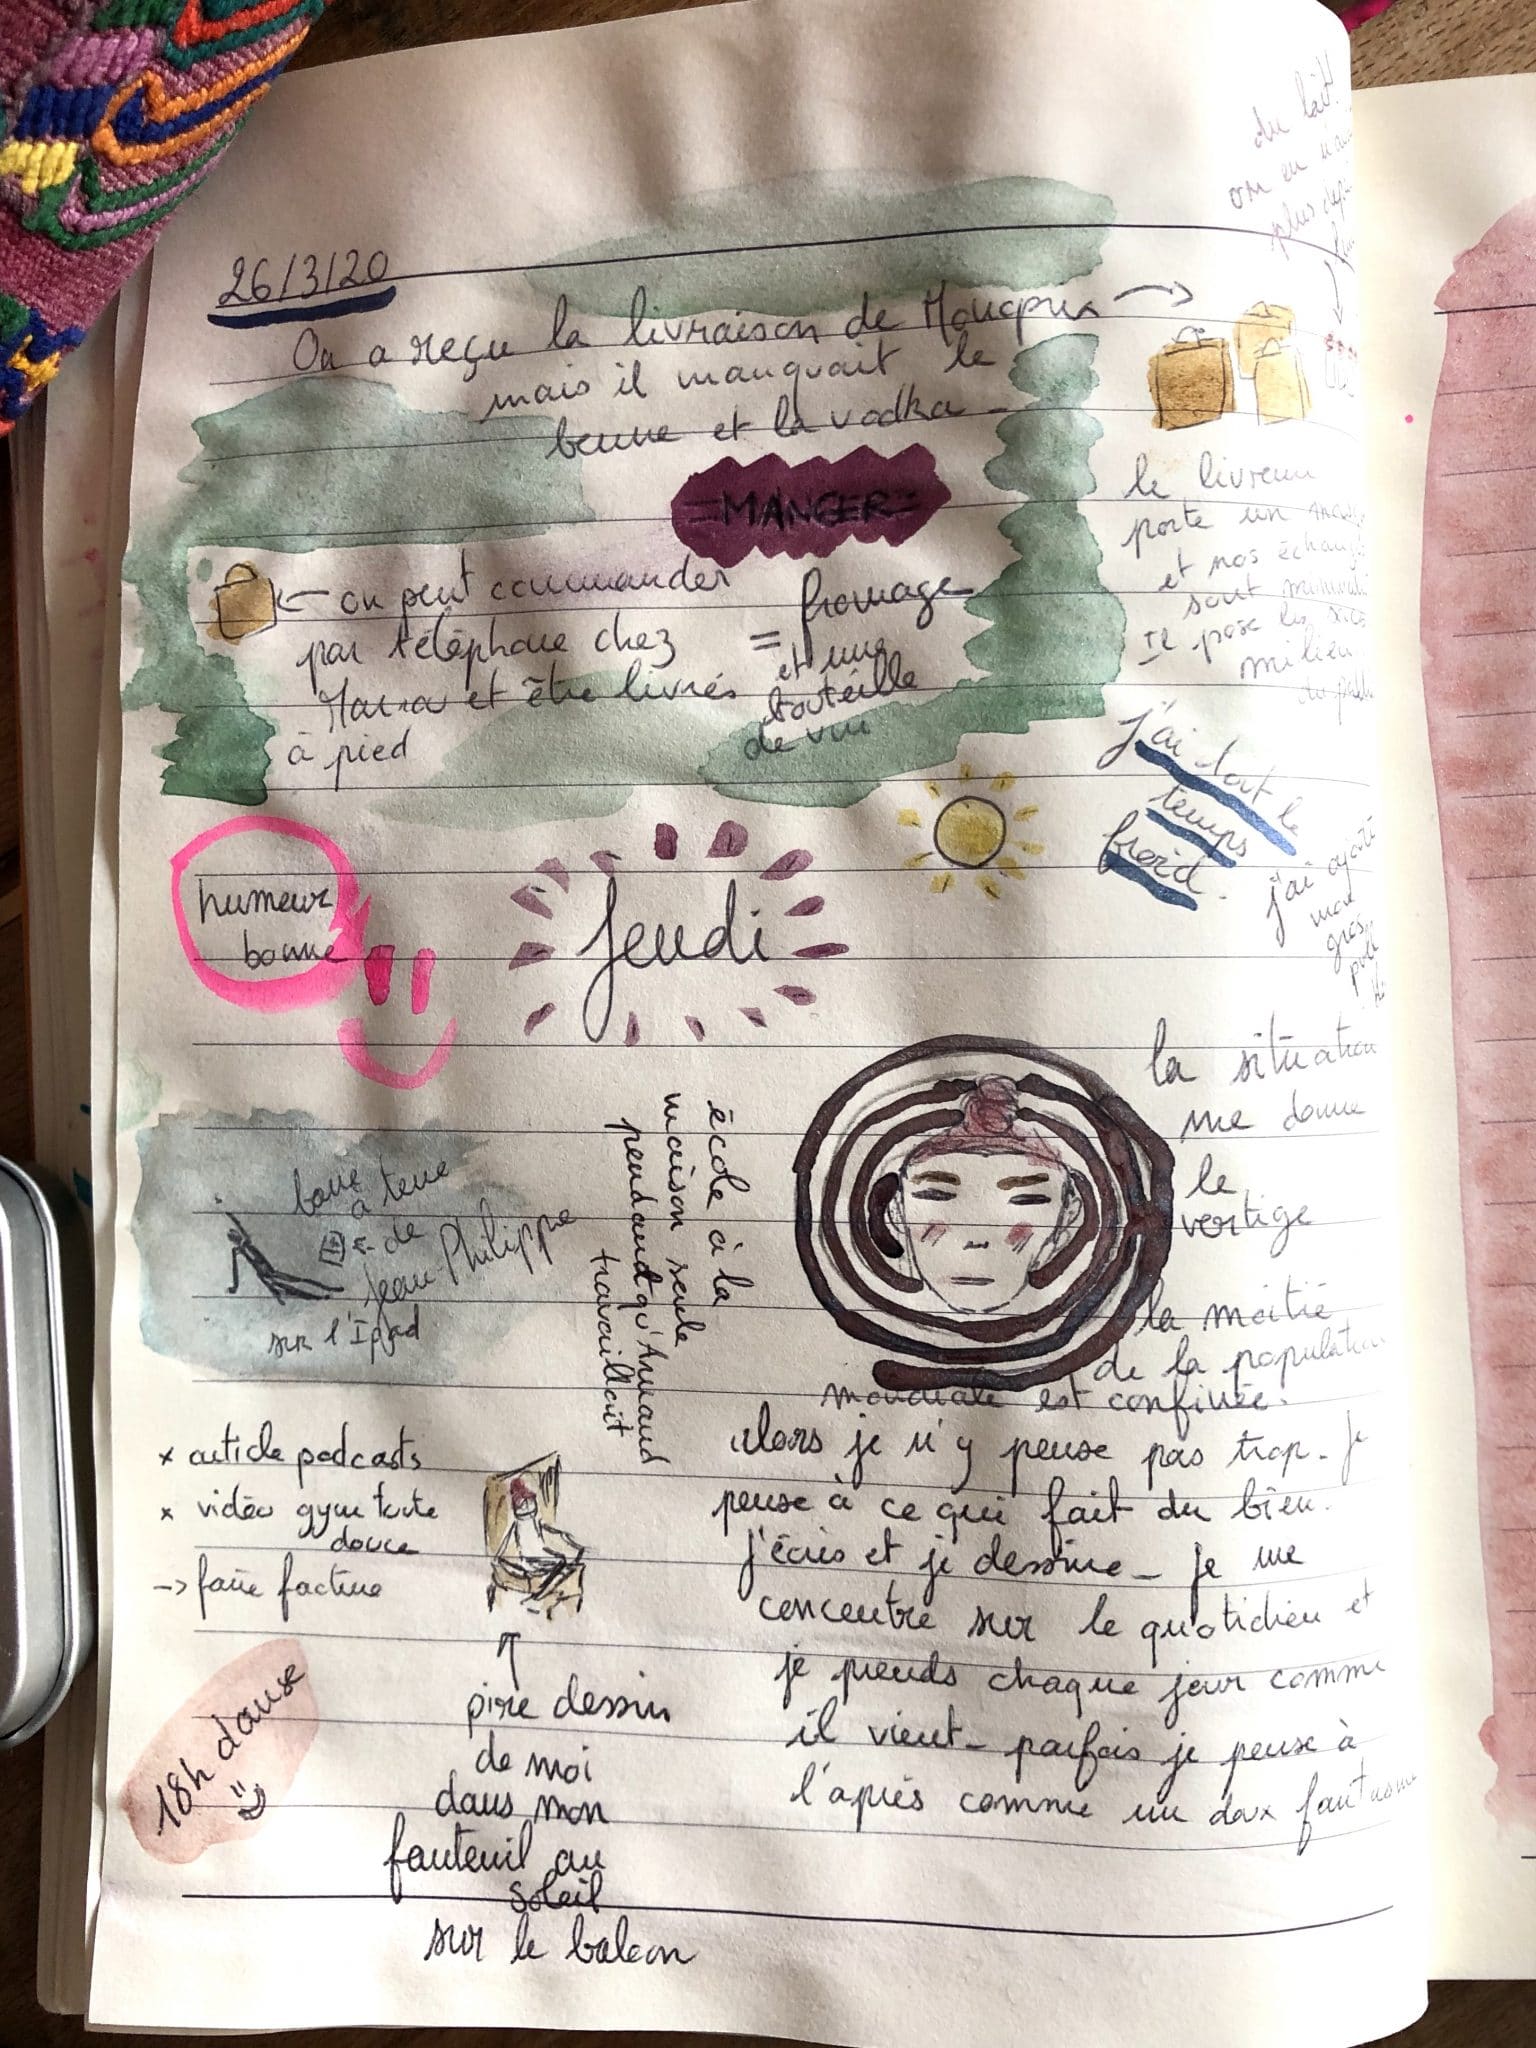 26/3/20
On a reçu la livraison de Monoprix →
mais il manquait le
beurre et la vodka -
du lait
on en
plus
=MANGER=
← on peut commander
par téléphone chez
et être livrés
à pied
= fromage
et une
bouteille
de vin
le livreur
porte un
et nos
sont
Il pose les
milieu
du
j'ai tout le
temps
froid.
j'ai
mon
gros
pull
humeur
bonne
Jeudi
la situation
me donne
le
vertige
la moitié
de la population
mondiale est confinée.
alors je n'y pense pas trop - je
pense à ce qui fait du bien.
j'écris et je dessine - je me
concentre sur le quotidien et
je prends chaque jour comme
il vient - parfois je pense à
l'après comme un doux fantasme
école à la
maison seule
pendant qu'Armand
travaillait
barre
à terre
← de
Jean-Philippe
sur l'Ipad
x article podcasts
x vidéo gym toute
douce
→ faire facture
18h danse
pire dessin
de moi
dans mon
fauteuil au
soleil
sur le balcon